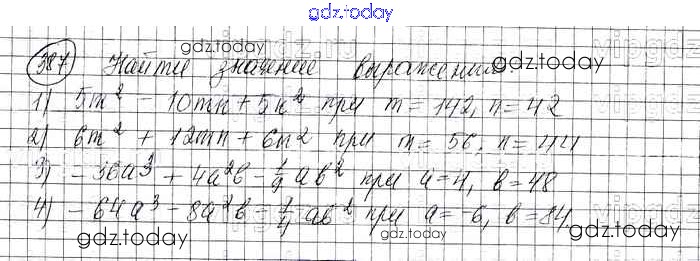 gdz.today
387 Найти значение выражения:
gdz.today gdz.today
1) 5m² - 10mn + 5n² при m = 142, n = 42
2) 6m² + 12mn + 6n² при m = 56, n = 44
3) - 36a³ + 4a²b - 1/9 ab² при a = 4, b = 48
4) - 64a³ - 8a²b - 1/4 ab² при a = -6, b = 84
gdz.today gdz.today gdz.today